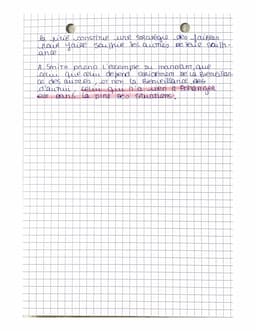 la pitié constitue une stratégie des faibles
pour faire souffrir les autres de leur souffr-
ance.
A. Smith prend l'exemple du mendiant, que
celui que celui dépend seulement de la Bienveillan-
ce des autres, or non la Bienveillance des
d'autrui, celui qui n'a rien à échanger
est dans la pire des situations.